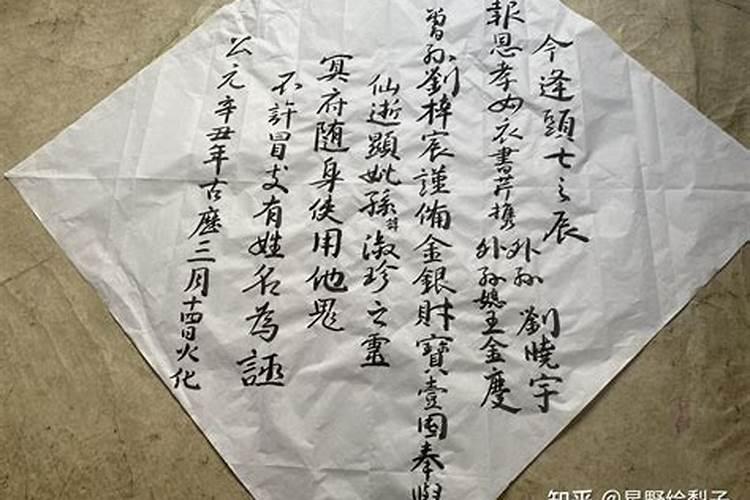 今逢頭七之辰
外孙 劉曉宇
報恩孝女衣書芹携外孙媳王金慶
曾孙劉梓宸謹備金銀財寶壹囤奉與
仙逝顯妣孫諱淑珍之靈
冥府随身使用他鬼
不許冒支有姓名為
公元辛丑年古曆三月十四日火化
知乎 @星野绘梨子